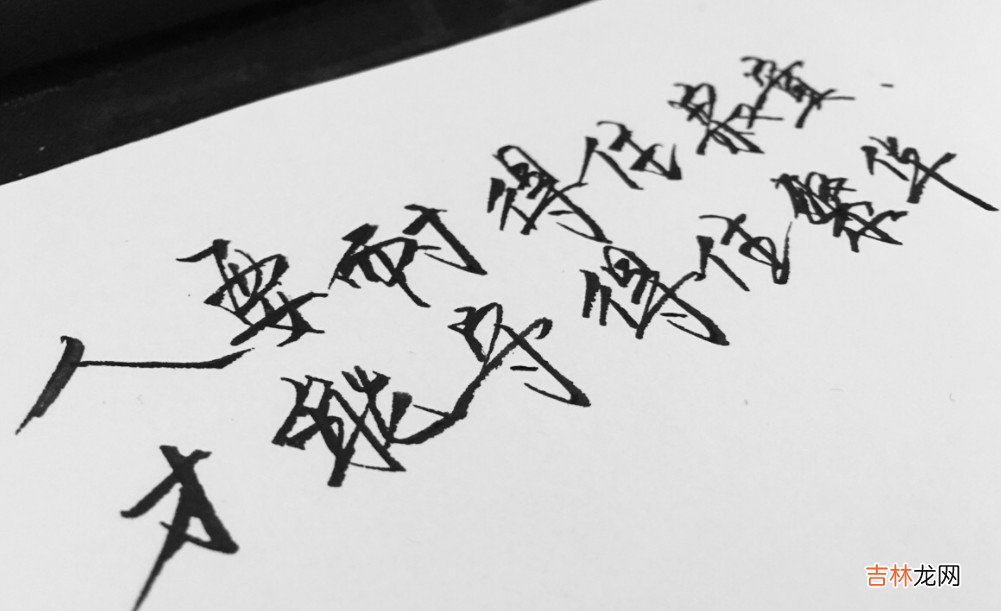 人要耐得住寂寞
才能守得住繁华
吉林龙网